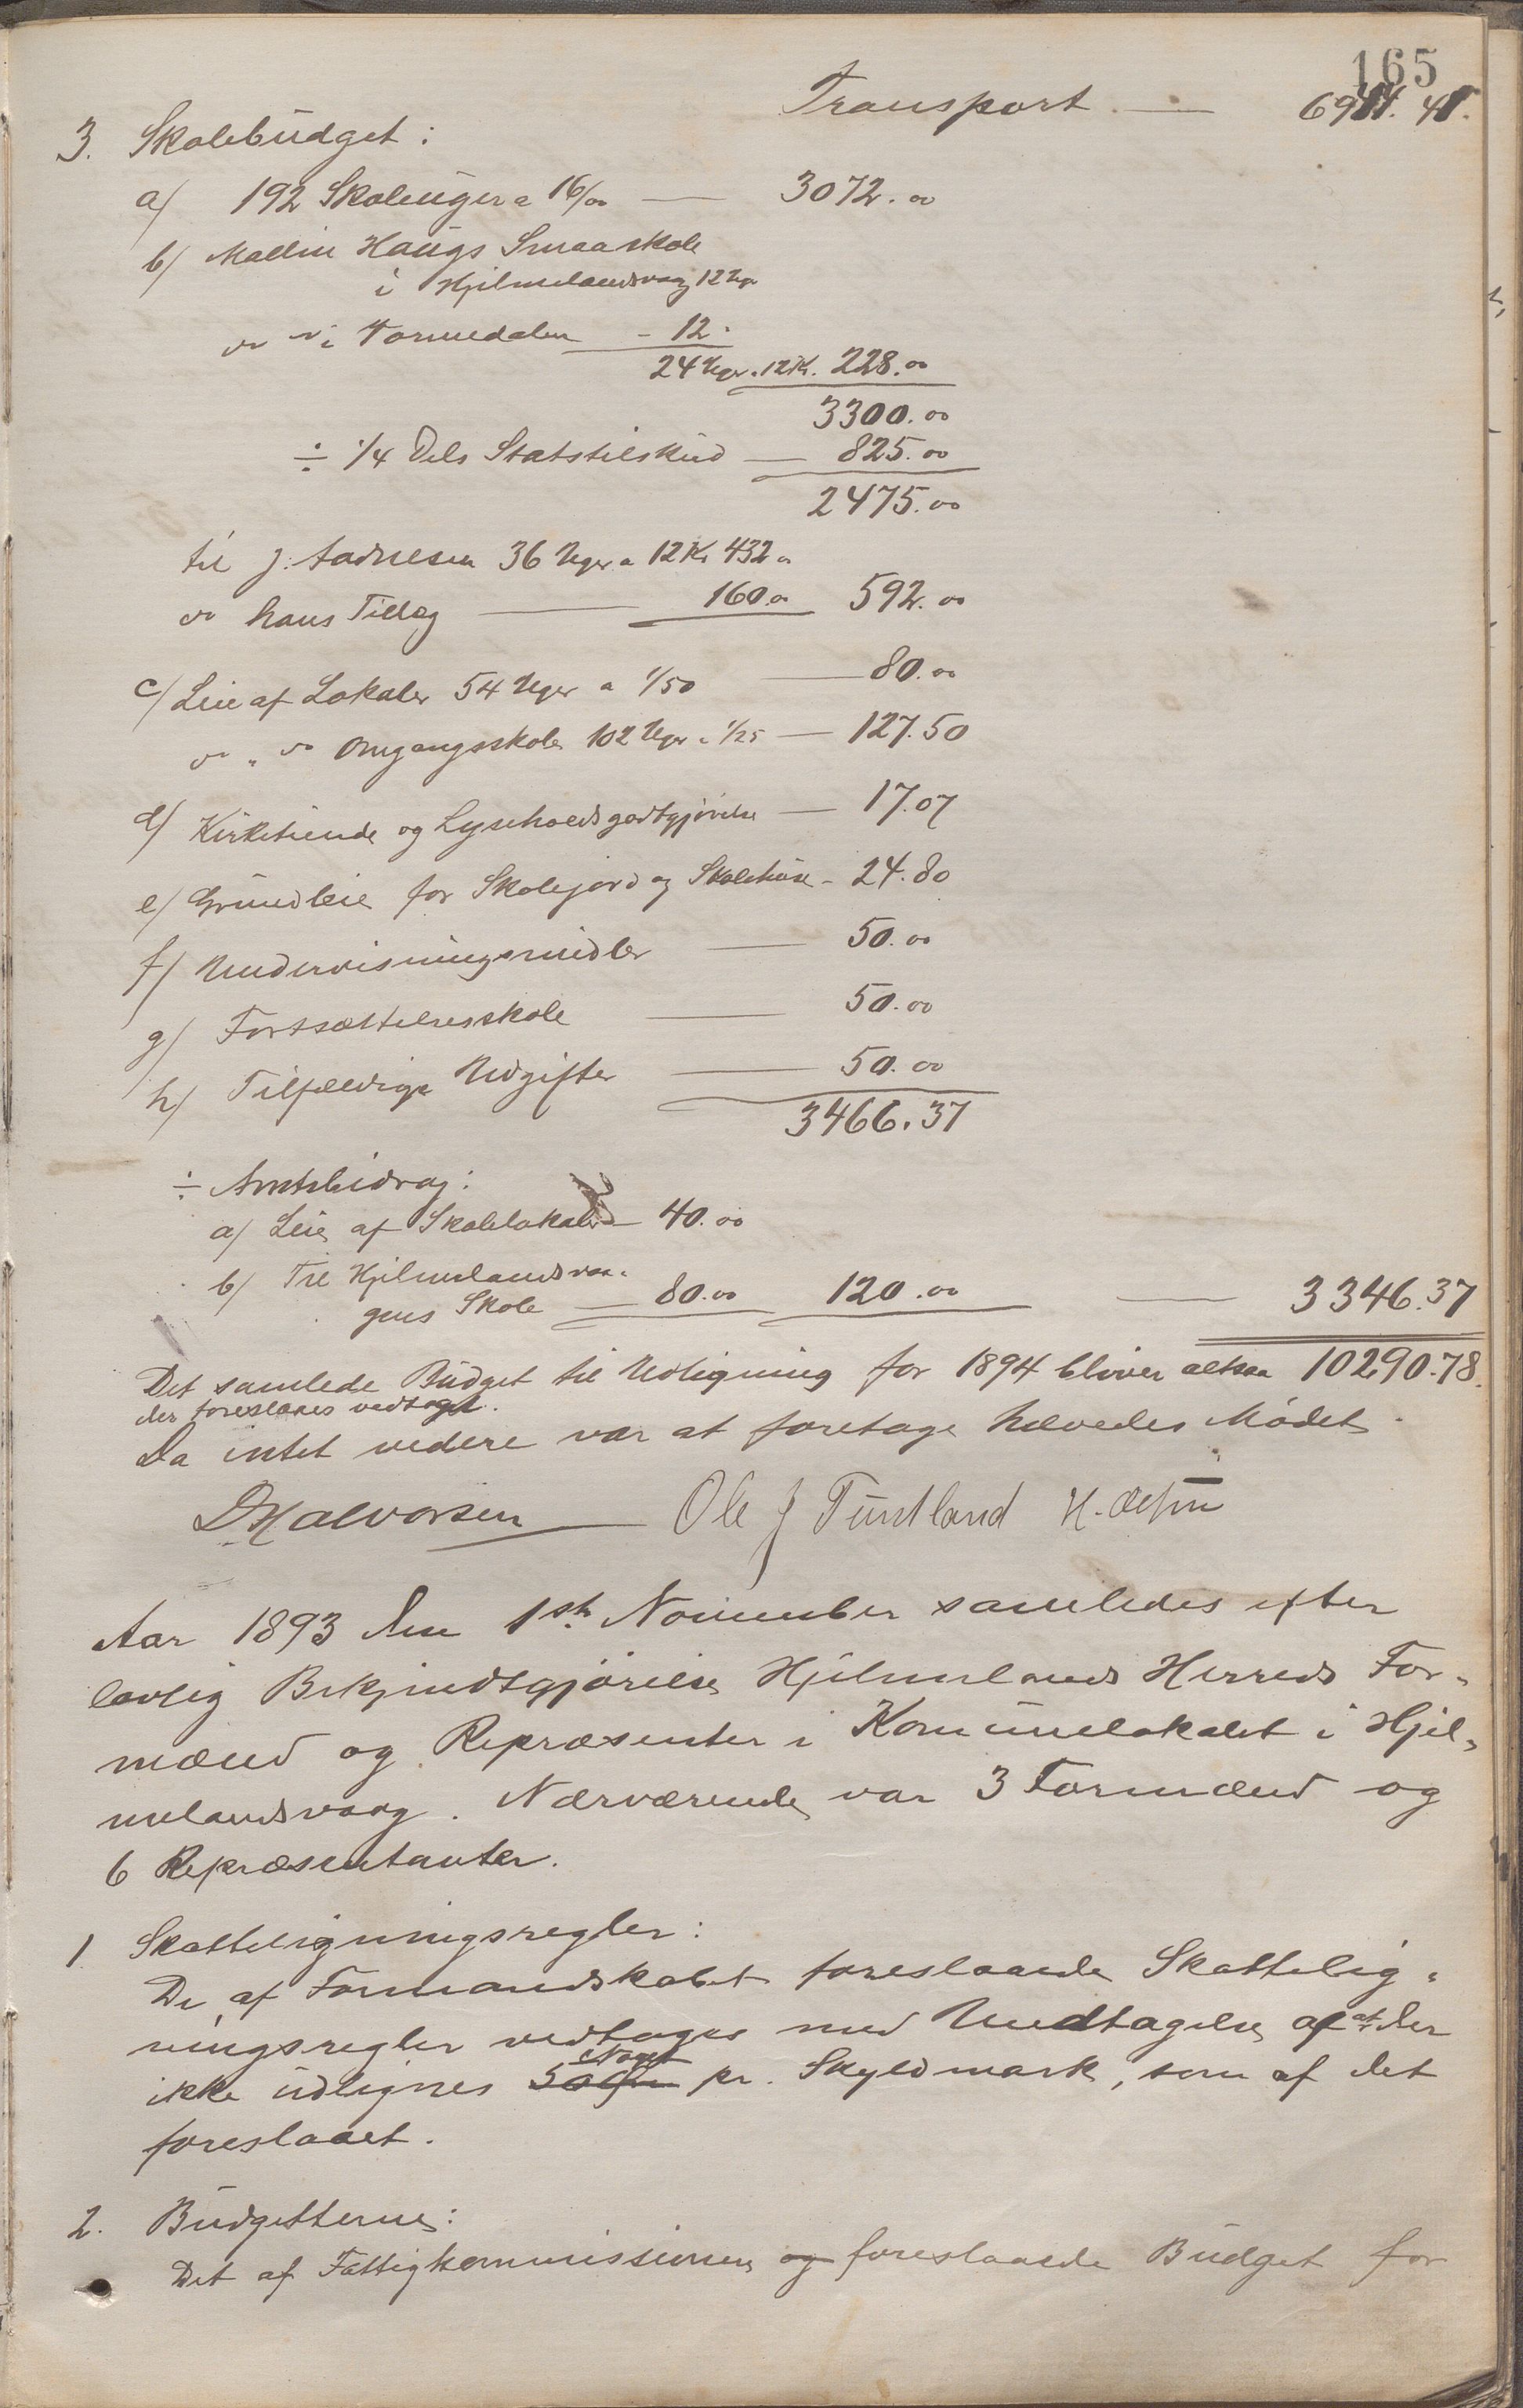 165
Transport — 6944. 41.
3. Skolebüdget:
a) 192 Skoleuger a 16/00 — 3072.00
b) Mallin Haugs Smaaskole
i Hjelmelandsvaag 12 Uger
do do i Tormedalen - 12.
24 Uger a 12 Kr. 228.00
3300.00
÷ 1/4 Dels Statstilskud — 825.00
2475.00
til J. Aadnesen 36 Uger a 12 Kr 432.00
do hans Tillæg — 160.00 592.00
c) Leie af Lokaler 54 Uger a 1/50 — 80.00
do " do Omgangsskole 102 Uger a 1/25 — 127.50
d) Kirketiende og Lyseholdsgodtgjörelse — 17.07
e) Grundleie for Skolejord og Skolehüse - 24.80
f) Undervisningsmidler — 50.00
g) Fortsættelsesskole — 50.00
h) Tilfældige Udgifter — 50.00
3466.37
÷ Amtsbidrag:
a) Leie af Skolelokaler — 40.00
b) Til Hjelmelandsvaa-
gens Skole — 80.00 120.00 — 3346.37
Det samlede Büdget til Udligning for 1894 bliver altsaa 10290.78.
der foreslaaes vedtaget.
Da intet videre var at foretage hævedes Mödet.
D Halvorsen Ole J Tüntland
Aar 1893 den 1ste November samledes efter
lovlig Bekjendtgjörelse Hjelmelands Herreds For-
mænd og Repræsenter i Kommunelokalet i Hjel-
melandsvaag. Nærværende var 3 Formænd og
6 Repræsentanter.
1 Skatteligningsregler:
De af Formandskabet foreslaaede Skattelig-
ningsregler vedtages med Undtagelse af at der
ikke üdlignes Noget pr. Skyldmark, som af det
foreslaaet.
2. Büdgetterne:
Det af Fattigkommissionen og foreslaaede Büdget for